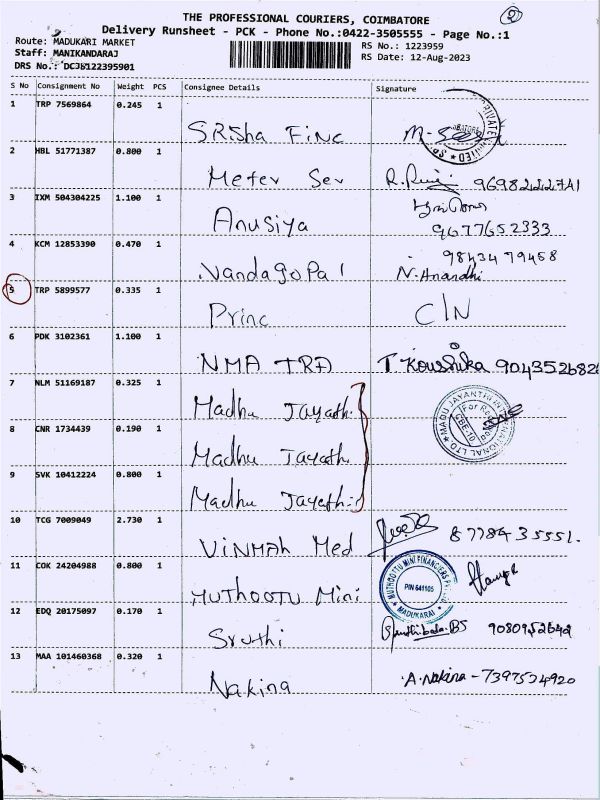 THE PROFESSIONAL COURIERS, COIMBATORE
2
Delivery Runsheet - PCK - Phone No.:0422-3505555 - Page No.:1
Route: MADUKARI MARKET
RS No.: 1223959
Staff: MANIKANDARAJ
RS Date: 12-Aug-2023
DRS No.: DCJB122395901
S No Consignment No Weight PCS Consignee Details Signature
1 TRP 7569864 0.245 1
SRisha Finc
2 HBL 51771387 0.800 1
Meter Ser 9698222741
3 IXM 504304225 1.100 1
Anusiya 9677652333
4 KCM 12853390 0.470 1
9843479458
Nandagopal N. Anandhi
5 TRP 5899577 0.335 1
Princ C/N
6 PDK 3102361 1.100 1
NMA TRA T. Koushika 904352682
7 NLM 51169187 0.325 1
Madhu Jayath
MADU JAYANTHI INTERNATIONAL LTD
8 CNR 1734439 0.190 1
Madhu Jayath
9 SVK 10412224 0.800 1
Madhu Jayathi
10 TCG 7009049 2.730 1
Vinmah Med 8778435551.
11 COK 24204988 0.800 1
Muthootu Mini
MUTHOOTTU MINI FINANCIERS
PIN 641105
MADUKARAI
12 EDQ 20175097 0.170 1
Sruthi 9080952642
13 MAA 101460368 0.320 1
Nakina A. Nakina - 7397534920